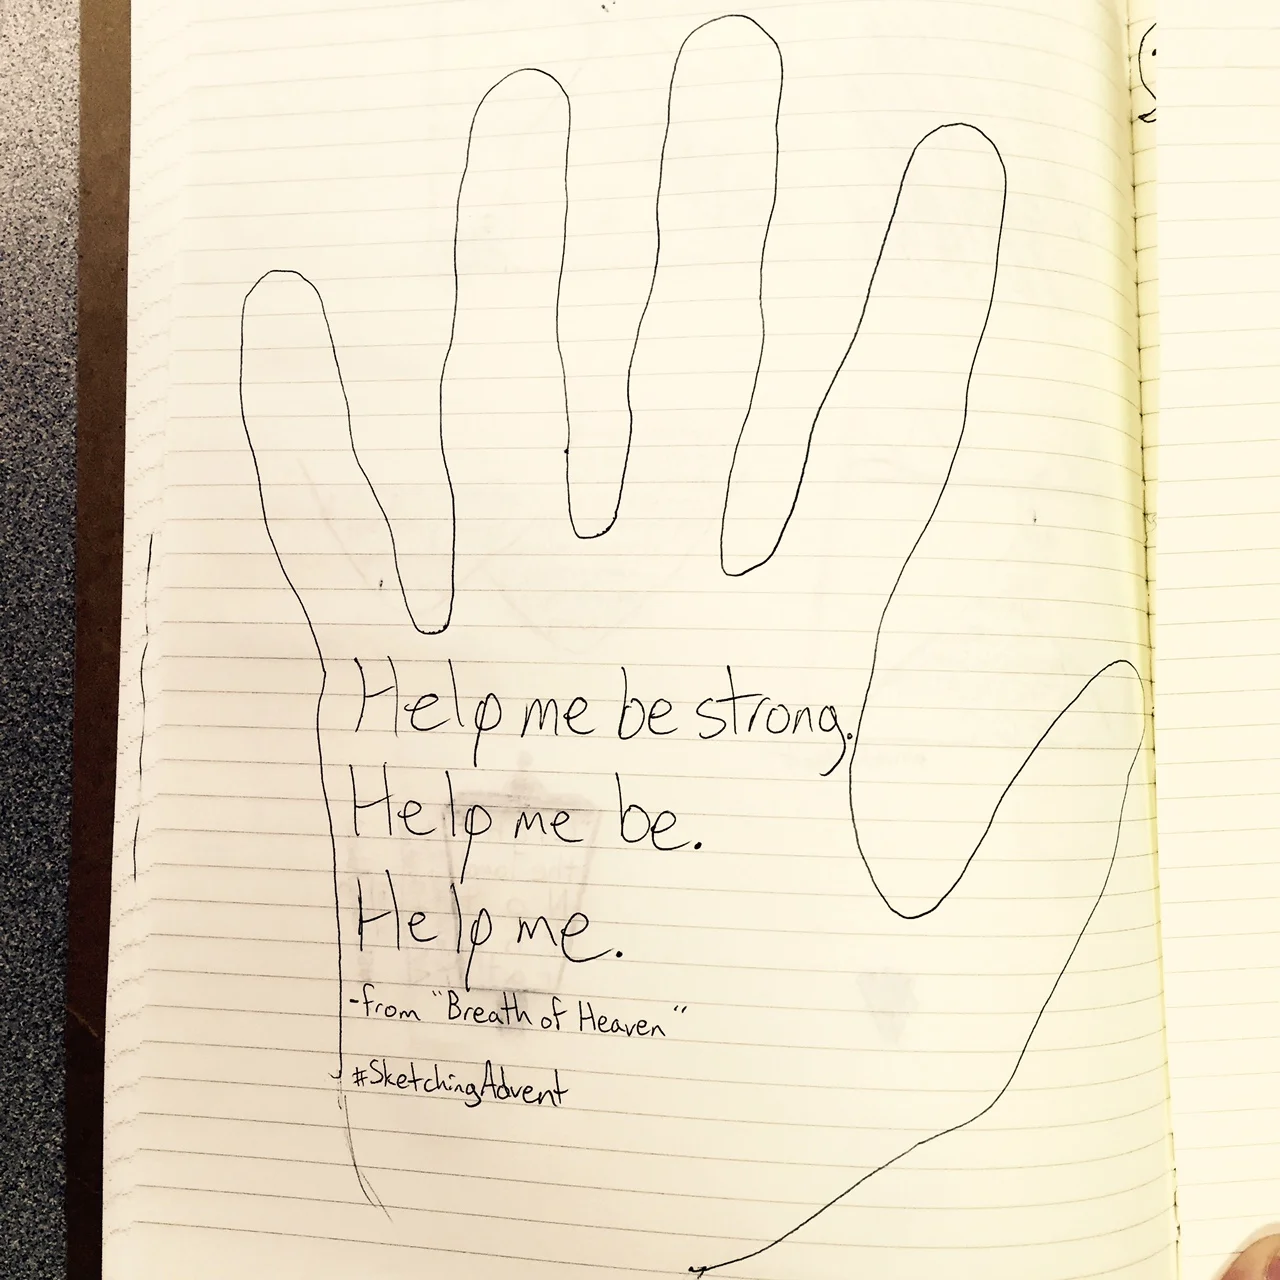 Help me be strong.
Help me be.
Help me.
-from "Breath of Heaven"
#SketchingAdvent